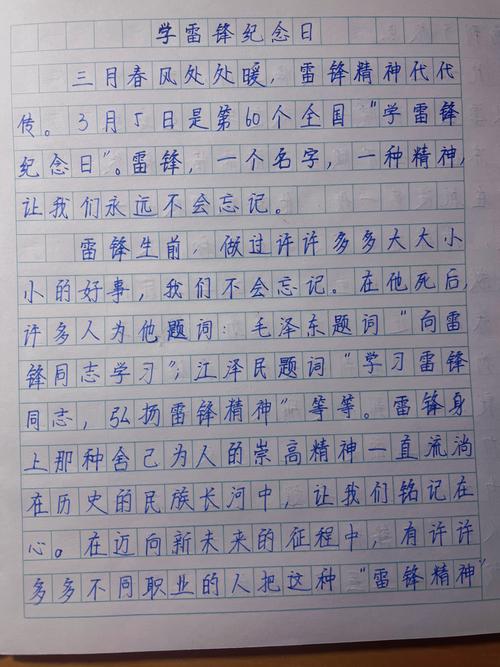 学雷锋纪念日
三月春风处处暖，雷锋精神代代
传。3月5日是第60个全国“学雷锋
纪念日”。雷锋，一个名字，一种精神，
让我们永远不会忘记。
雷锋生前，做过许许多多大大小
小的好事，我们不会忘记。在他死后，
许多人为他题词：毛泽东题词“向雷
锋同志学习”；江泽民题词“学习雷锋
同志，弘扬雷锋精神”等等。雷锋身
上那种舍己为人的崇高精神一直流淌
在历史的民族长河中，让我们铭记在
心。在迈向新未来的征程中，有许许
多多不同职业的人把这种“雷锋精神”